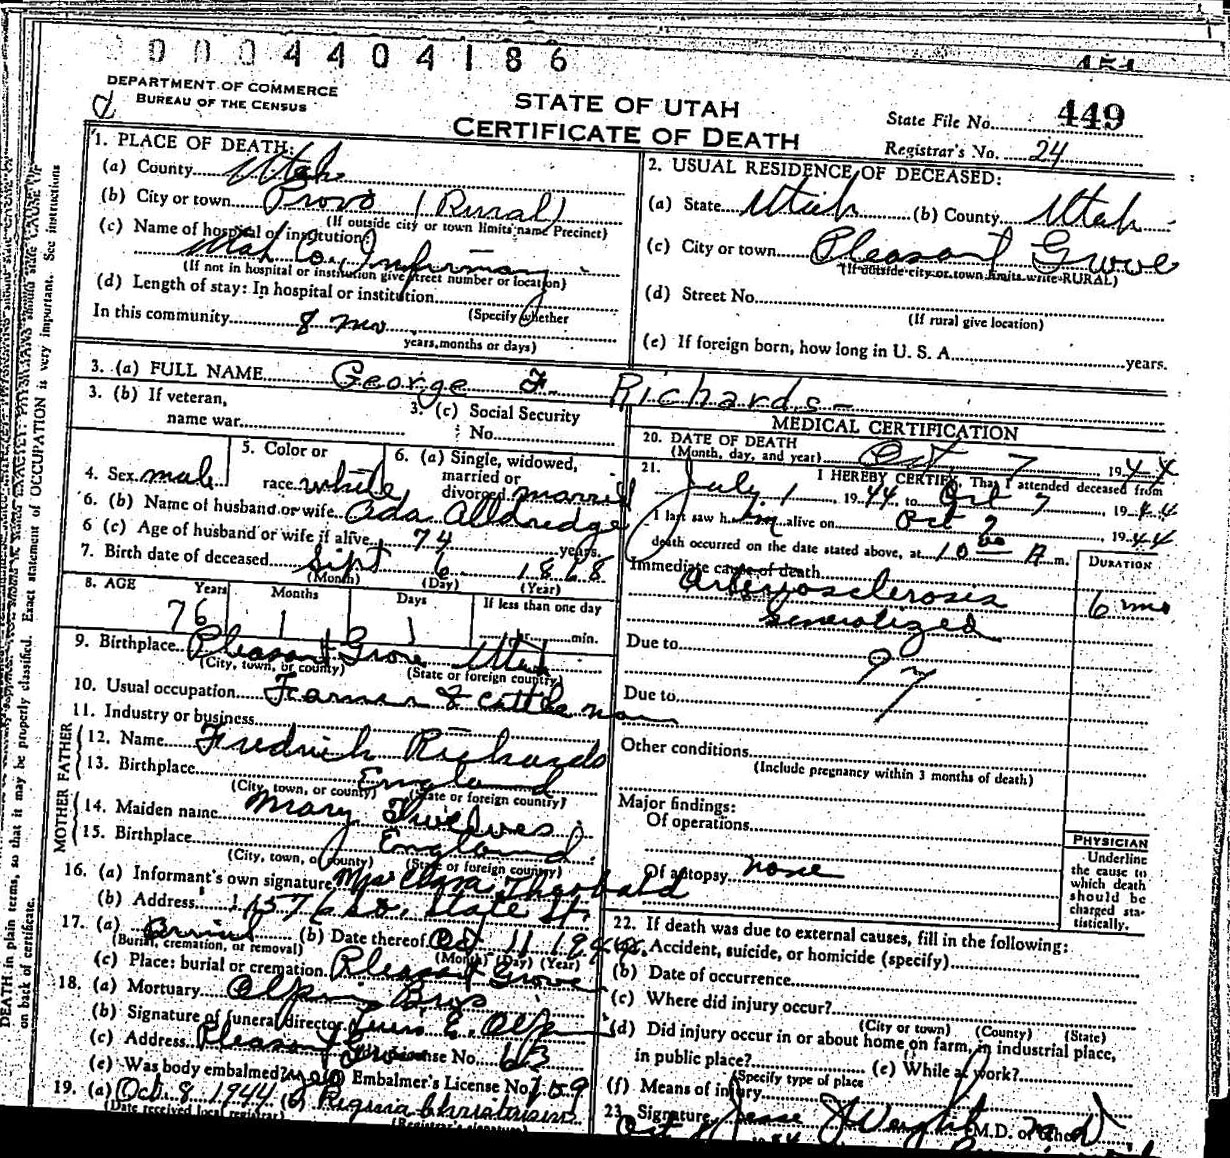 0004404186
DEPARTMENT OF COMMERCE
BUREAU OF THE CENSUS
STATE OF UTAH
CERTIFICATE OF DEATH
State File No. 449
Registrar's No. 24
1. PLACE OF DEATH:
(a) County Utah
(b) City or town Provo (Rural)
(If outside city or town limits name Precinct)
(c) Name of hospital or institution
Utah Co. Infirmary
(If not in hospital or institution give street number or location)
(d) Length of stay: In hospital or institution
(Specify whether
In this community 8 mo
years, months or days)
2. USUAL RESIDENCE OF DECEASED:
(a) State Utah (b) County Utah
(c) City or town Pleasant Grove
(If outside city or town limits write RURAL)
(d) Street No.
(If rural give location)
(e) If foreign born, how long in U. S. A. years.
3. (a) FULL NAME George F. Richards
3. (b) If veteran,
name war
3. (c) Social Security
No.
4. Sex male
5. Color or
race white
6. (a) Single, widowed,
married or
divorced married
6. (b) Name of husband or wife Ada Alldredge
6 (c) Age of husband or wife if alive 74 years.
7. Birth date of deceased Sept 6 1868
(Month) (Day) (Year)
8. AGE Years Months Days If less than one day
76 1 1 hr. min.
9. Birthplace Pleasant Grove Utah
(City, town, or county) (State or foreign country)
10. Usual occupation Farmer & cattle man
11. Industry or business
FATHER
12. Name Fredrick Richards
13. Birthplace England
(City, town, or county) (State or foreign country)
MOTHER
14. Maiden name Mary Twelves
15. Birthplace England
(City, town, or county) (State or foreign country)
16. (a) Informant's own signature Mrs Theobald
(b) Address 1576 So. State St.
17. (a) Burial (b) Date thereof Oct 11 1944
(Burial, cremation, or removal) (Month) (Day) (Year)
(c) Place: burial or cremation Pleasant Grove
18. (a) Mortuary Olpin Bros
(b) Signature of funeral director E. Olpin
(c) Address Pleasant Grove License No. 613
(e) Was body embalmed? Embalmer's License No. 159
19. (a) Oct. 8 1944 (b) Regina Christensen
(Date received local registrar) (Registrar's signature)
MEDICAL CERTIFICATION
20. DATE OF DEATH
(Month, day, and year) Oct. 7 1944
21. I HEREBY CERTIFY, That I attended deceased from
July 1 1944 to Oct 7 1944
I last saw him alive on Oct 2 1944
death occurred on the date stated above, at 10 00 A m.
DURATION
Immediate cause of death
Arteriosclerosis 6 mo
generalized
Due to
97
Due to
Other conditions
(Include pregnancy within 3 months of death)
Major findings:
Of operations
Of autopsy none
PHYSICIAN
Underline
the cause to
which death
should be
charged sta-
tistically.
22. If death was due to external causes, fill in the following:
(a) Accident, suicide, or homicide (specify)
(b) Date of occurrence
(c) Where did injury occur?
(City or town) (County) (State)
(d) Did injury occur in or about home on farm, in industrial place,
in public place? (e) While at work?
(Specify type of place
(f) Means of injury
23. Signature Jesse J Weight M.D. or other
DEATH in plain terms, so that it may be properly classified. Exact statement of OCCUPATION is very important. See instructions
on back of certificate.